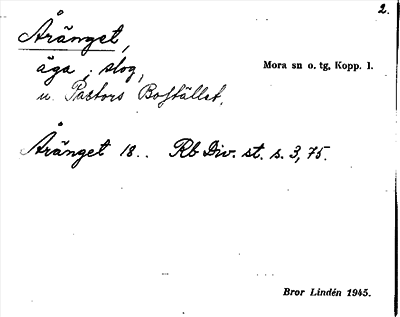 2.
Åränget,
äga ; slog,
Mora sn o. tg, Kopp. l.
u. Pastors Bostället.
Åränget 18.. Rb Div. st. s. 3, 75.
Bror Lindén 1945.